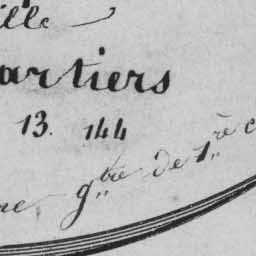 ille
artiers
13. 144
ne g.bre de 1.re c